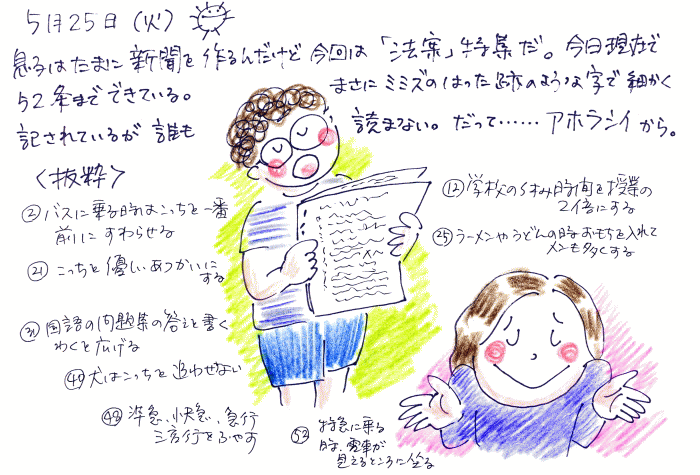 5月25日（火）
息子はたまに新聞を作るんだけど今回は「法案」特集だ。今日現在で
52条までできている。
まさにミミズのはった跡のような字で細かく
記されているが誰も
読まない。だって……アホラシイから。
〈抜粋〉
②バスに乗る時はこっちを一番
前にすわらせる
㉑こっちを優しいあつかいに
する
㉛国語の問題集の答えを書く
わくを広げる
㊵犬はこっちを追わせない
㊾準急、快急、急行
三宮行をふやす
⑫学校の休み時間を授業の
2倍にする
㉕ラーメンやうどんの時おもちを入れて
メンも多くする
㊾特急に乗る
時、電車が
見えるところに座る